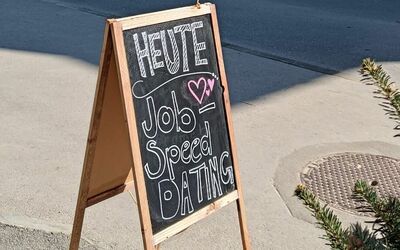 HEUTE
Job-
Speed
DATING